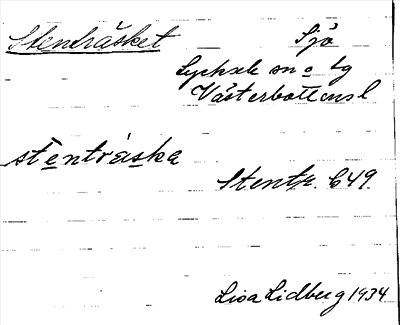 Stenträsket Sjö
Lycksele sn o tg
Västerbottensl
stènträ̀ska
Stentr. C49.
Lisa Lidberg 1934